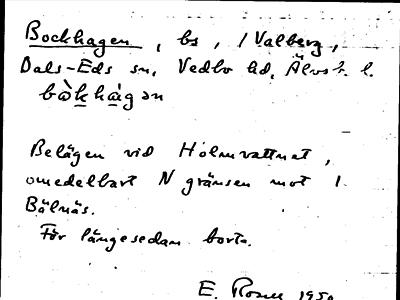 Bockhagen, bs, / Valberg,
Dals-Eds sn, Vedbo hd, Älvsb. l.
bo᷆khagən
Belägen vid Holmvattnet,
omedelbart N gränsen mot 1
Bälnäs.
För längesedan borta.
E. Rosell 1950